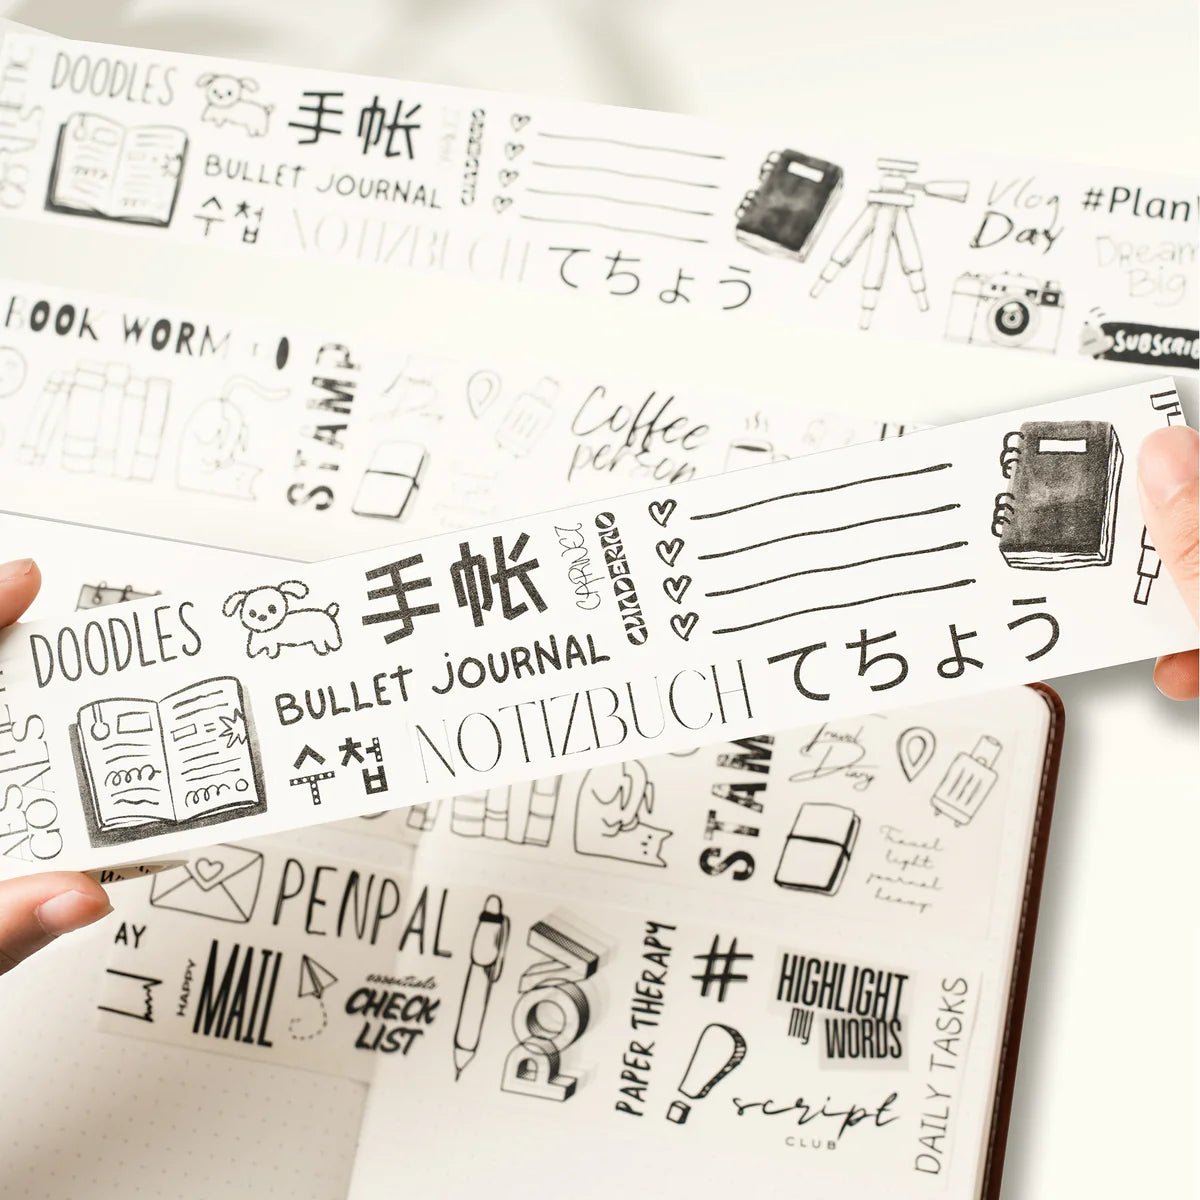 DOODLES
手帐
BULLET JOURNAL
CUADERNO
수첩
NOTIZBUCH
てちょう
Vlog
Day
#Plan
Dream
Big
SUBSCRIB
BOOK WORM
STAMP
Coffee
person
DOODLES
手帐
CARNET
CUADERNO
BULLET JOURNAL
수첩
NOTIZBUCH
てちょう
AESTHETIC
GOALS
STAM
Travel
Diary
Travel
light
journal
heavy
PENPAL
AY
HAPPY
MAIL
essentials
CHECK
LIST
POV
PAPER THERAPY
#
HIGHLIGHT
my
WORDS
!
script
CLUB
DAILY TASKS